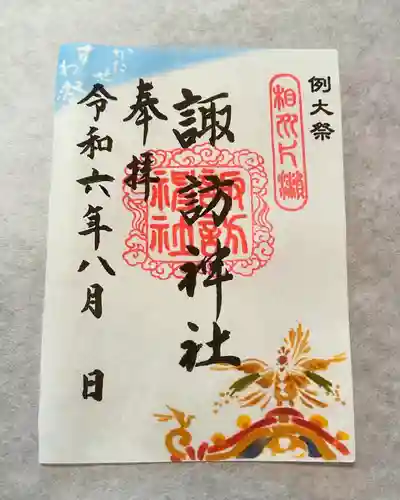 例大祭
相州片瀬
諏訪神社
諏訪神社
奉拝
令和六年八月 日
かたせ
すわ祭